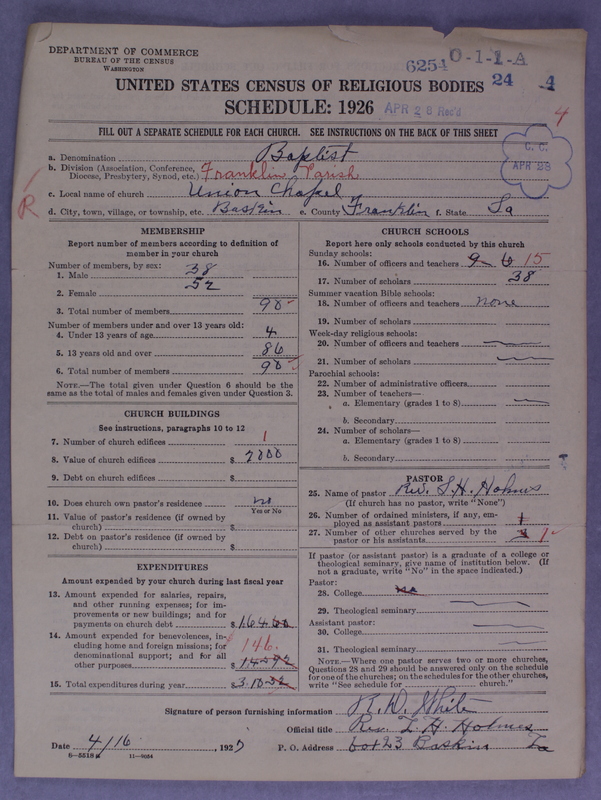 DEPARTMENT OF COMMERCE
BUREAU OF THE CENSUS
WASHINGTON
6254 O-1-1-A
24 4
UNITED STATES CENSUS OF RELIGIOUS BODIES
SCHEDULE: 1926
APR 28 Rec'd
4
FILL OUT A SEPARATE SCHEDULE FOR EACH CHURCH. SEE INSTRUCTIONS ON THE BACK OF THIS SHEET
C. C.
APR 28
R
a. Denomination Baptist
b. Division (Association, Conference, Diocese, Presbytery, Synod, etc.) Franklin Parish
c. Local name of church Union Chapel
d. City, town, village, or township, etc. Baskin e. County Franklin f. State La
MEMBERSHIP
Report number of members according to definition of
member in your church
Number of members, by sex:
1. Male 38
2. Female 52
3. Total number of members 90
Number of members under and over 13 years old:
4. Under 13 years of age 4
5. 13 years old and over 86
6. Total number of members 90
NOTE.—The total given under Question 6 should be
same as the total of males and females given under Question 3.
CHURCH BUILDINGS
See instructions, paragraphs 10 to 12
7. Number of church edifices 1
8. Value of church edifices $ 2000
9. Debt on church edifices $
10. Does church own pastor's residence? no
Yes or No
11. Value of pastor's residence (if owned by
church) $
12. Debt on pastor's residence (if owned by
church) $
EXPENDITURES
Amount expended by your church during last fiscal year
13. Amount expended for salaries, repairs,
and other running expenses; for im-
provements or new buildings; and for
payments on church debt $ 164.60
14. Amount expended for benevolences, in-
cluding home and foreign missions; for
denominational support; and for all
other purposes $ 146.
15. Total expenditures during year $
CHURCH SCHOOLS
Report here only schools conducted by this church
Sunday schools:
16. Number of officers and teachers 9 6 15
17. Number of scholars 38
Summer vacation Bible schools:
18. Number of officers and teachers none
19. Number of scholars
Week-day religious schools:
20. Number of officers and teachers
21. Number of scholars
Parochial schools:
22. Number of administrative officers
23. Number of teachers—
a. Elementary (grades 1 to 8)
b. Secondary
24. Number of scholars—
a. Elementary (grades 1 to 8)
b. Secondary
PASTOR
25. Name of pastor Rev. L. H. Holmes
(If church has no pastor, write "None")
26. Number of ordained ministers, if any, em-
ployed as assistant pastors 1
27. Number of other churches served by the
pastor or his assistants 1
If pastor (or assistant pastor) is a graduate of a college or
theological seminary, give name of institution below. (If
not a graduate, write "No" in the space indicated.)
Pastor:
28. College No
29. Theological seminary
Assistant pastor:
30. College
31. Theological seminary
NOTE.—Where one pastor serves two or more churches,
Questions 28 and 29 should be answered only on the schedule
for one of the churches; on the schedules for the other churches,
write "See schedule for church."
Signature of person furnishing information R. W. White
Official title Rev. L. H. Holmes
Date 4/16, 1927 P. O. Address box 23 Baskin La
6—5518 11—9034